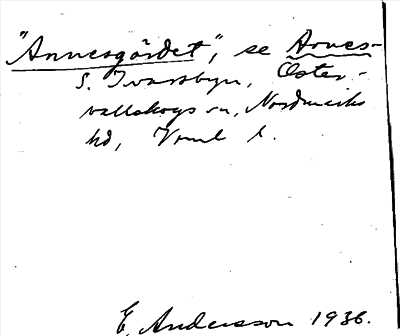 "Annesgärdet", se Arnes-
S. Ivarsbyn, Öster-
vallskogs sn, Nordmarks
hd, Vrml l.
E. Andersson 1936.